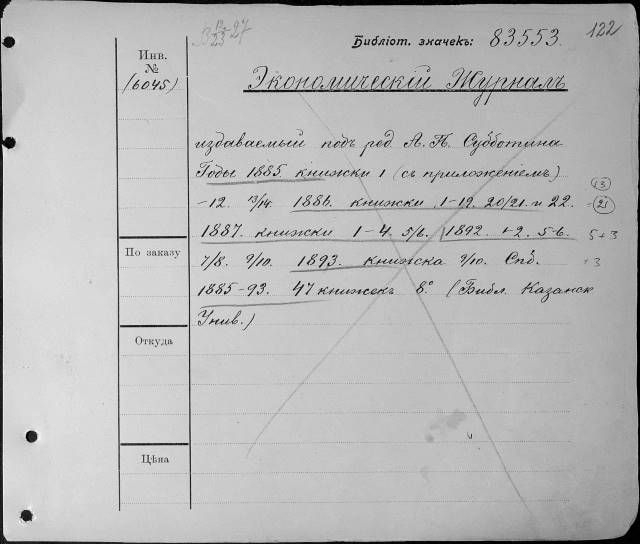 В 12/23 27
Библіот. значекъ: 83553.
122
Инв.
№
(6045)
Экономическій Журналъ
издаваемый подъ ред. А. П. Субботина
Годы 1885. книжки 1 (съ приложеніемъ)
-12. 13/14. 1886. книжки 1-19. 20/21. и 22.
13
21
1887. книжки 1-4. 5/6. 1892. 1-2. 5-6.
5+3
По заказу
7/8. 9/10. 1893. книжка 9/10. Спб.
3
1885-93. 47 книжек 8° (Библ. Казанск
Унив.)
Откуда
Цѣна